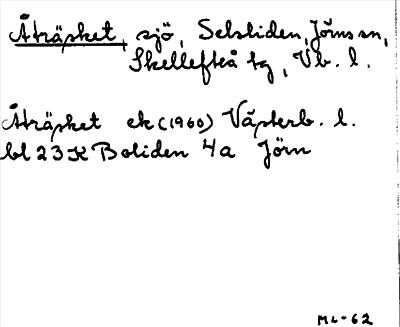 Åträsket, sjö, Selsliden, Jörns sn,
Skellefteå tg, Vb. l.
Åträsket ek (1960) Västerb. l.
bl 23 K Boliden 4a Jörn
ML-62